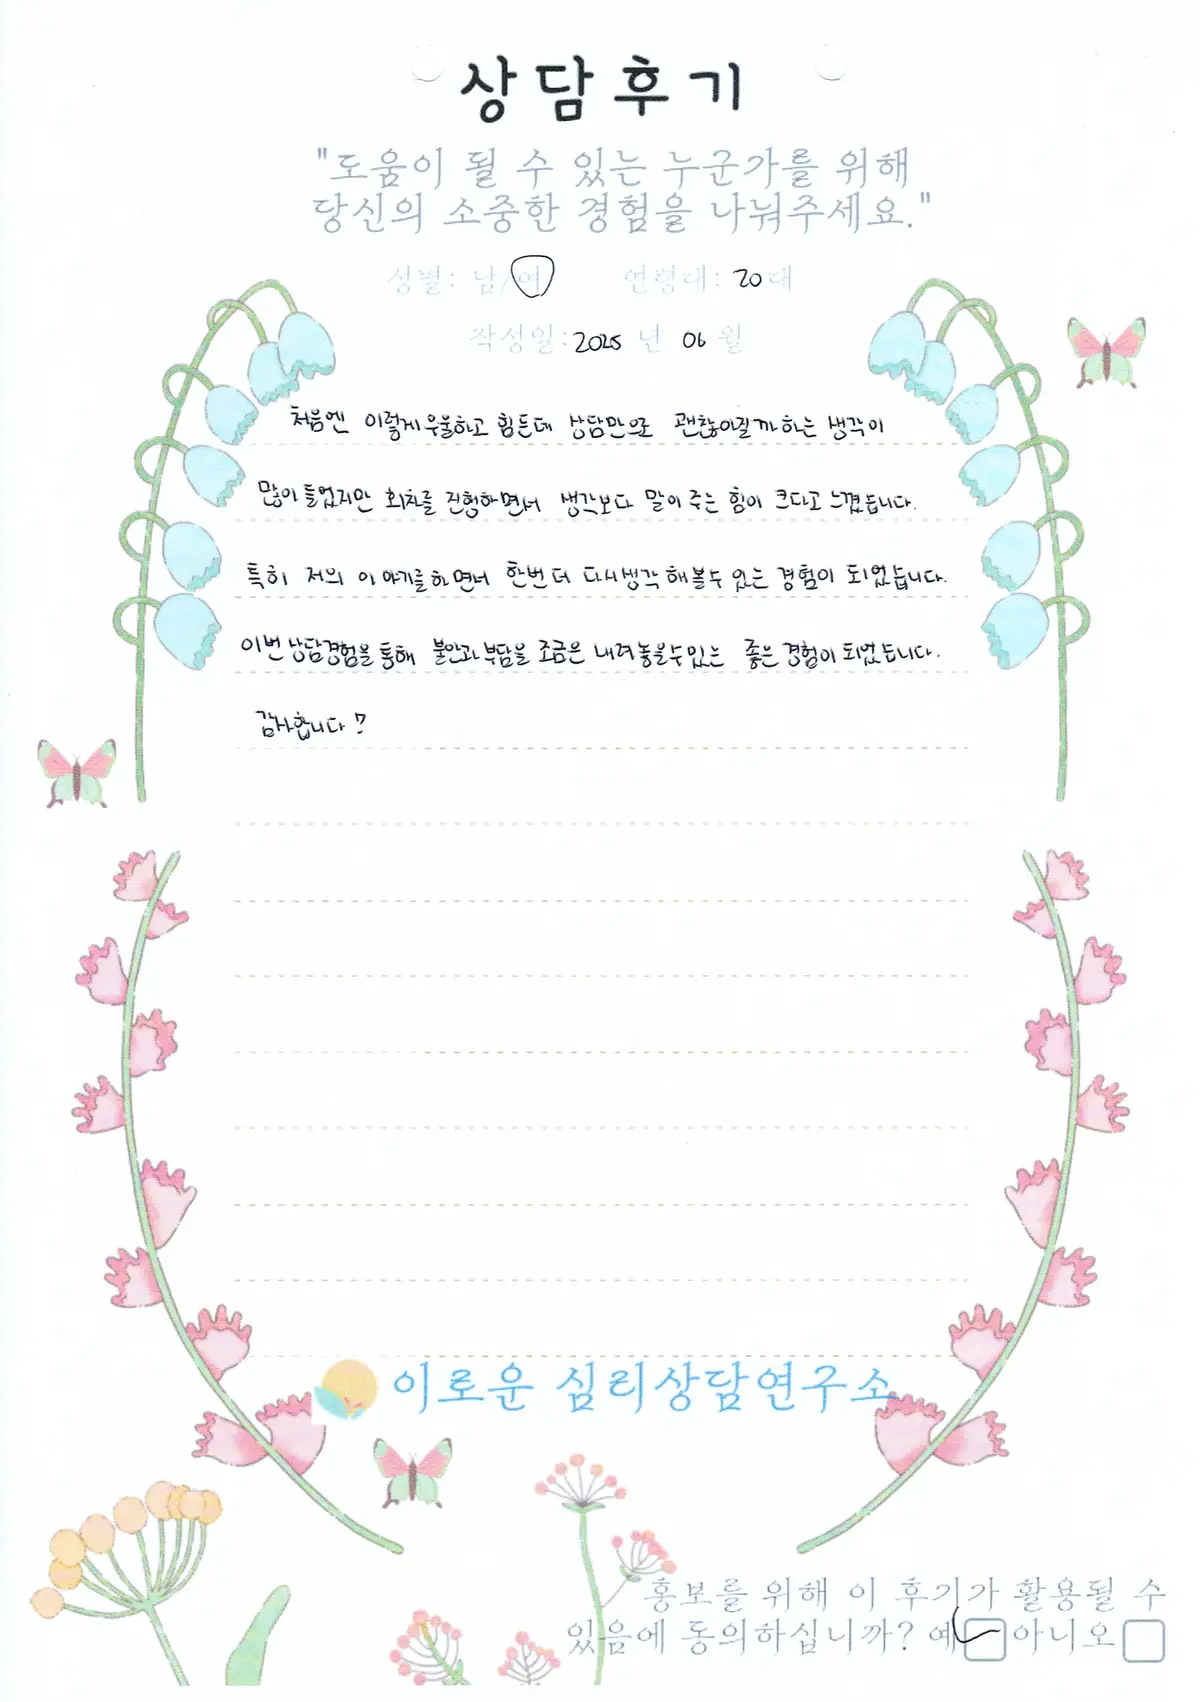 상담후기
"도움이 될 수 있는 누군가를 위해
당신의 소중한 경험을 나눠주세요."
성별: 남/여 연령대: 20대
작성일: 2025 년 06 월
처음엔 이렇게 우울하고 힘든데 상담만으로 괜찮아질까하는 생각이
많이 들었지만 회차를 진행하면서 생각보다 말이 주는 힘이 크다고 느꼈습니다.
특히 저의 이야기를 하면서 한번 더 다시 생각해 볼 수 있는 경험이 되었습니다.
이번 상담경험을 통해 불안과 부담을 조금은 내려놓을 수 있는 좋은 경험이 되었습니다.
감사합니다!
이로운 심리상담연구소
홍보를 위해 이 후기가 활용될 수
있음에 동의하십니까? 예 아니오